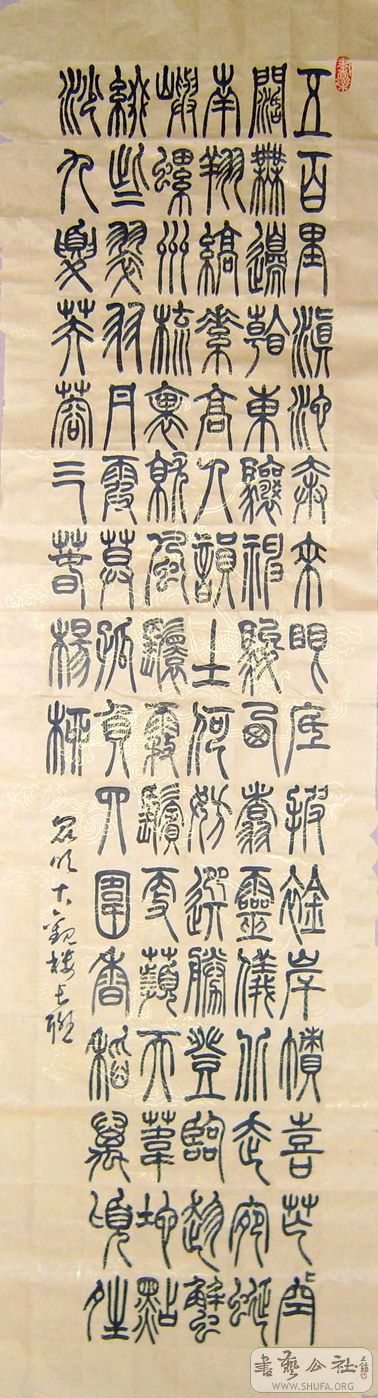 五百里滇池奔來眼底披襟岸幘喜茫〻空
闊無邊看東驤神駿西翥靈儀北走蜿蜒
南翔縞素高人韻士何妨選勝登臨趁蟹
嶼螺州梳裹就風鬟霧鬢更蘋天葦地點
綴些翠羽丹霞莫孤負四圍香稻萬頃晴
沙九夏芙蓉三春楊柳
昆明大觀樓長聯
書藝公社
WWW.SHUFA.ORG